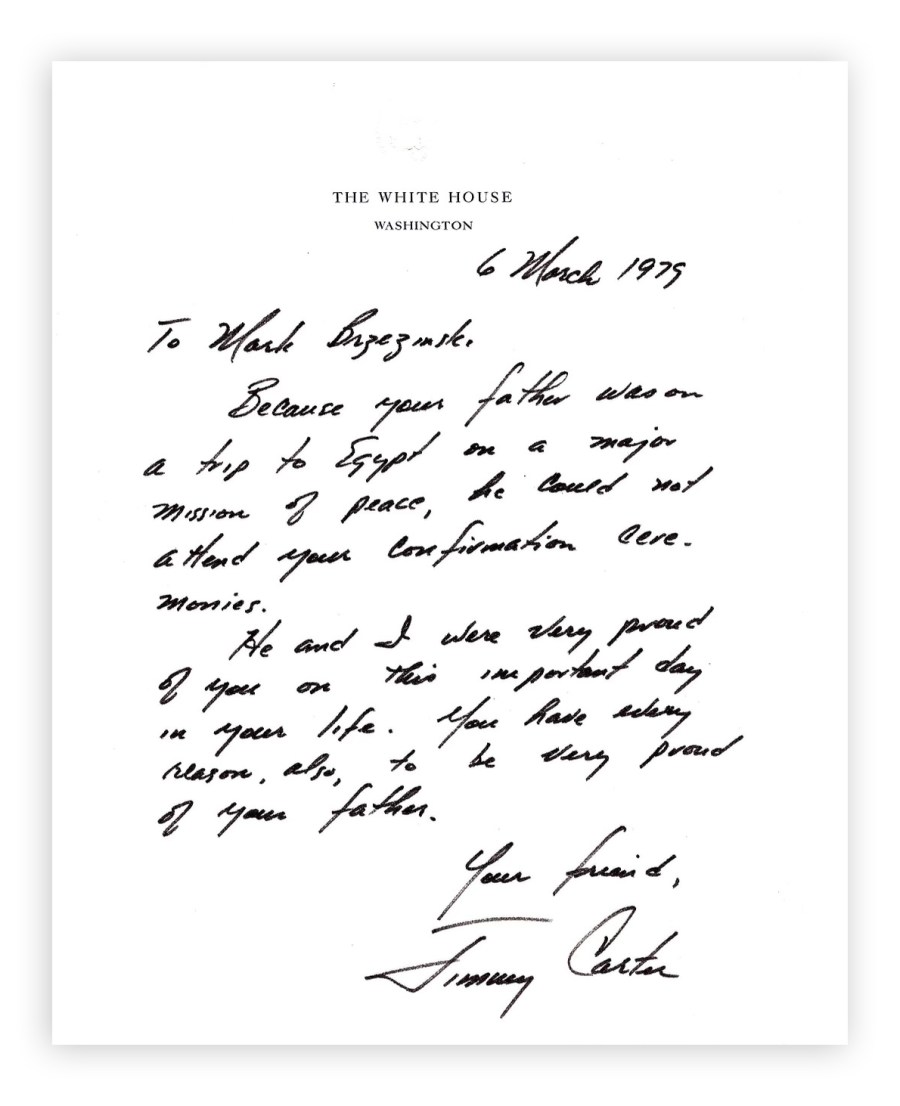 THE WHITE HOUSE
WASHINGTON
6 March 1979
To Mark Brzezinski
Because your father was on
a trip to Egypt on a major
mission of peace, he could not
attend your confirmation cere-
monies.
He and I were very proud
of you on this important day
in your life. You have every
reason, also, to be very proud
of your father.
Your friend,
Jimmy Carter